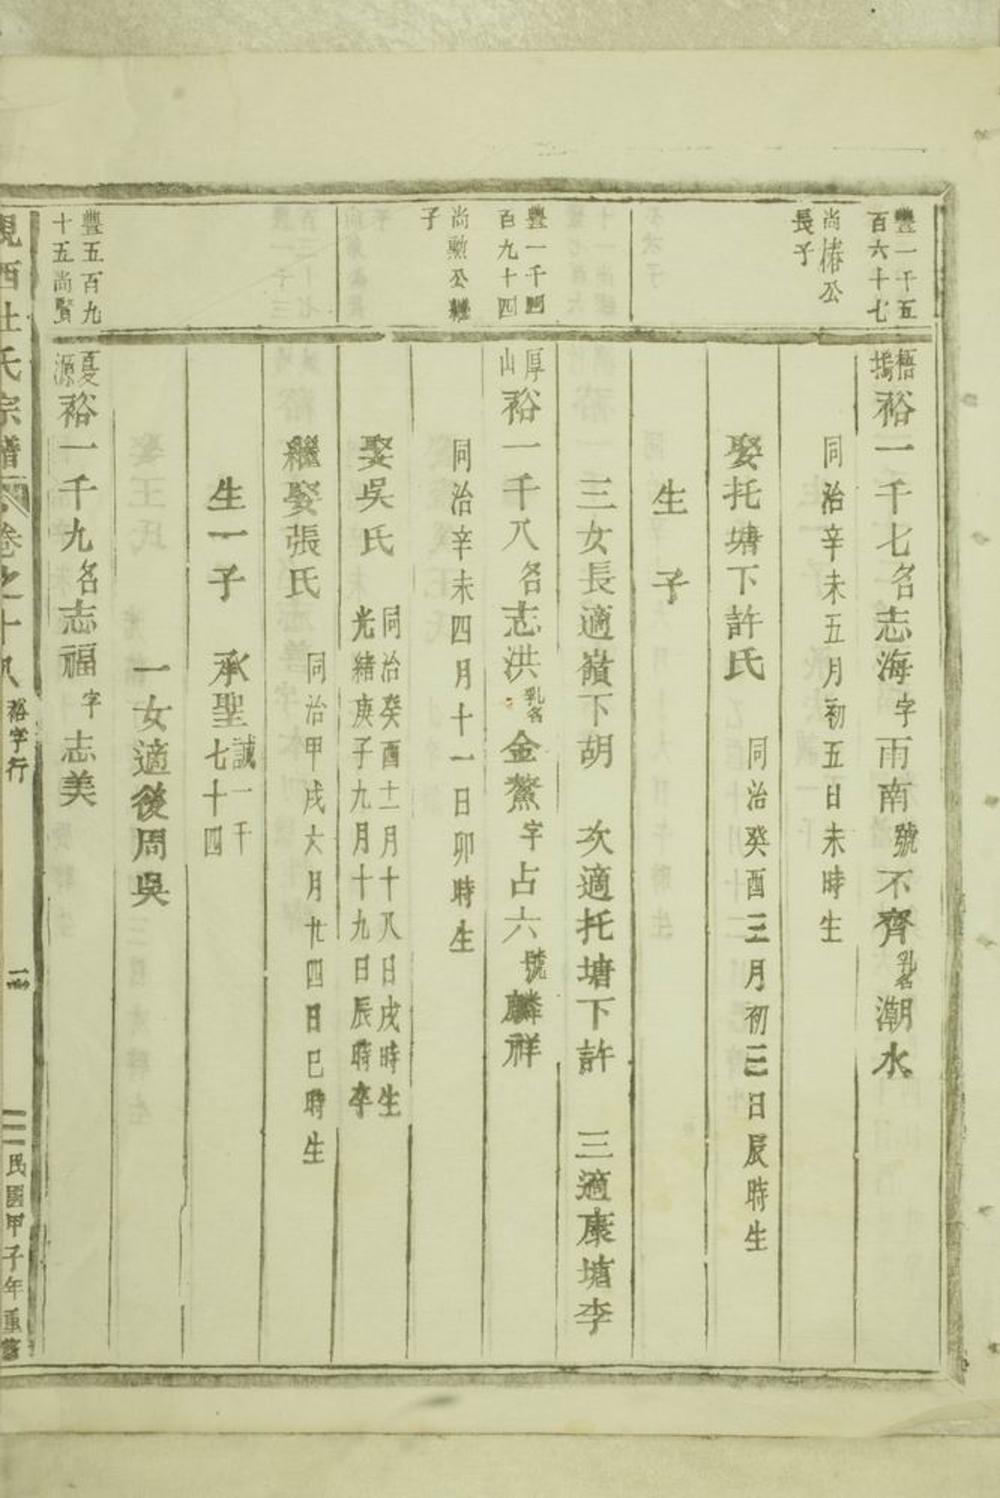 豐一千五百六十七
尚椿公長子
梧塢裕一千七名志海字雨南號不齊乳名潮水
同治辛未五月初五日未時生
娶托塘下許氏 同治癸酉三月初三日辰時生
生 子
三女長適嶺下胡 次適托塘下許 三適康塘李
豐一千四百九十四
尚勲公繼子
厚山裕一千八名志洪乳名金鰲字占六號麟祥
同治辛未四月十一日卯時生
娶吳氏 同治癸酉十二月十八日戌時生
光緒庚子九月十九日辰時卒
繼娶張氏 同治甲戌六月廿四日巳時生
生一子 承聖誠一千七十四
一女適後周吳
豐五百九十五尚賢
憂源裕一千九名志福字志美
峴西杜氏宗譜 卷之十八 裕字行 民國甲子年重修